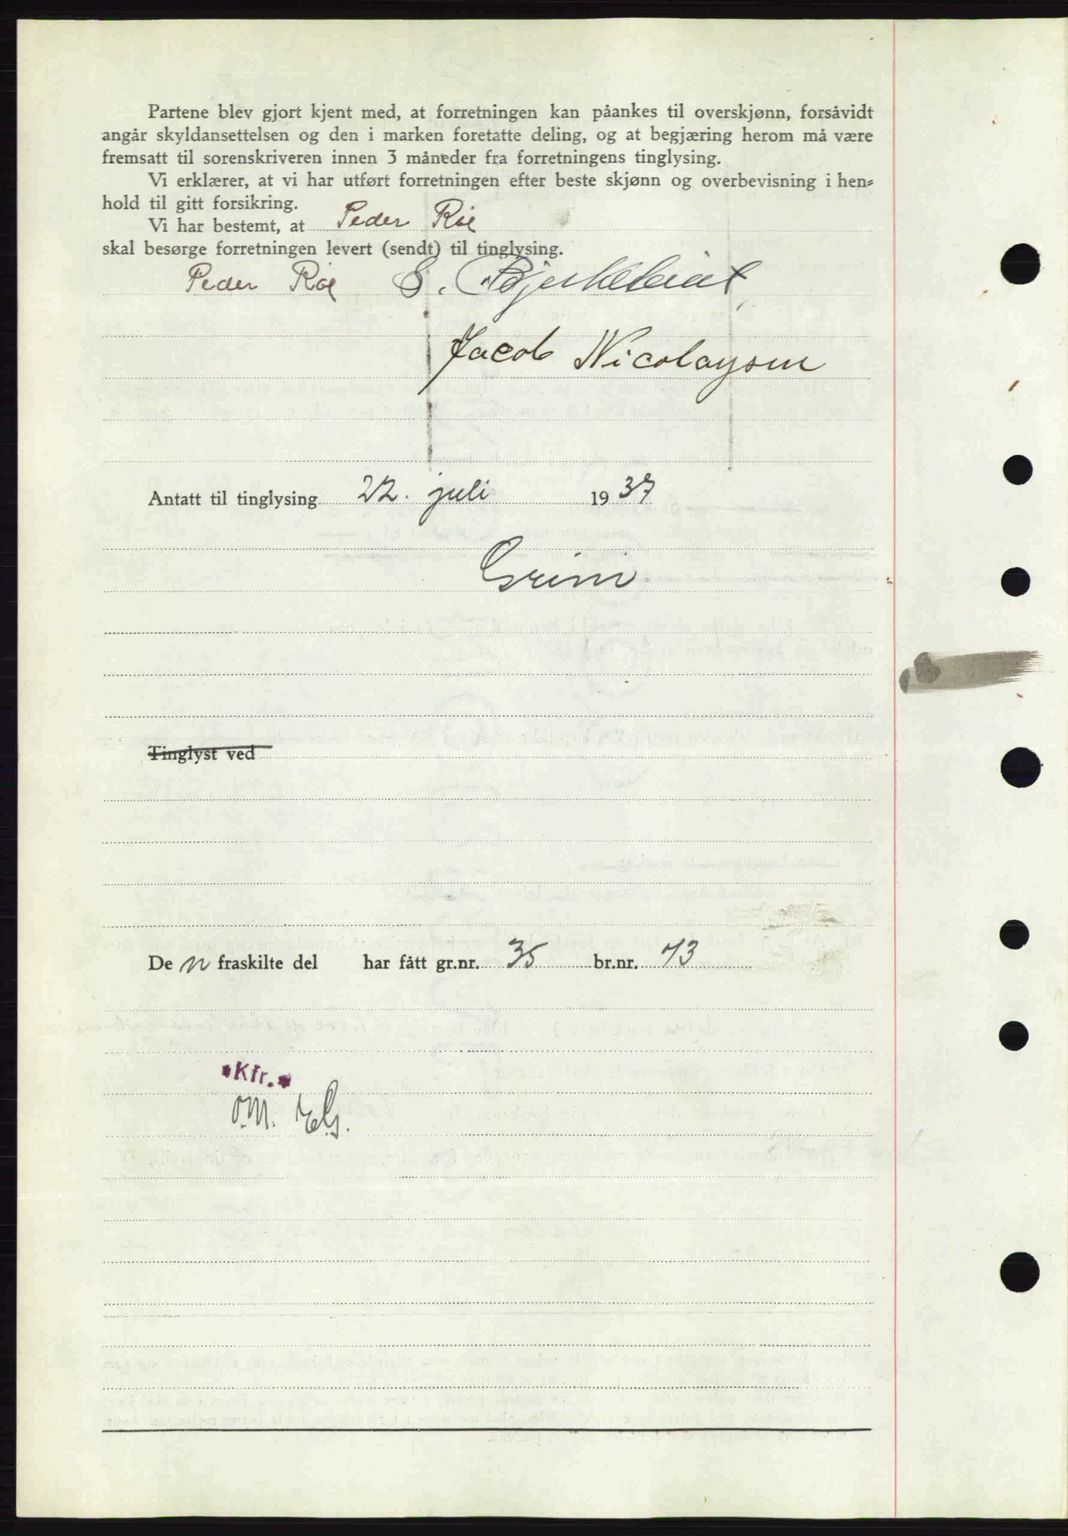 Partene blev gjort kjent med, at forretningen kan påankes til overskjønn, forsåvidt
angår skyldansettelsen og den i marken foretatte deling, og at begjæring herom må være
fremsatt til sorenskriveren innen 3 måneder fra forretningens tinglysing.
Vi erklærer, at vi har utført forretningen efter beste skjønn og overbevisning i hen-
hold til gitt forsikring.
Vi har bestemt, at Peder Roe
skal besørge forretningen levert (sendt) til tinglysing.
Peder Roe S. Bjerkebeiet
Jacob Nicolaysen
Antatt til tinglysing 22. juli 1937
Grini
Tinglyst ved
De n fraskilte del har fått gr.nr. 35 br.nr. 73
*Kfr.*
O.M. EG.